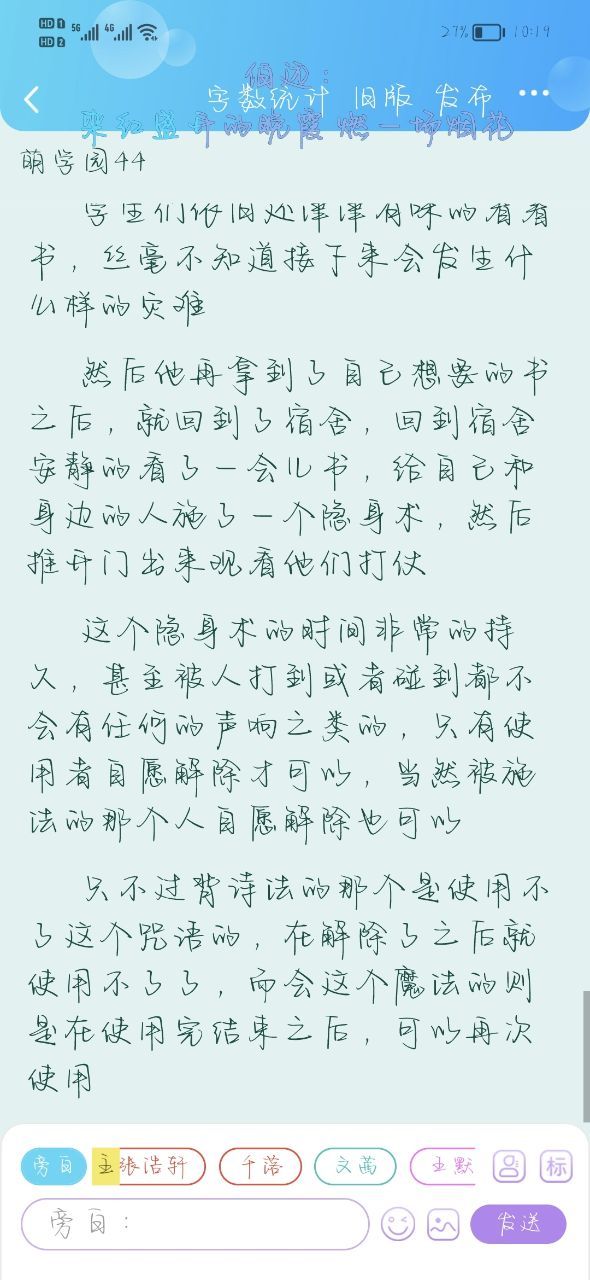 HD 1 5G 4G
HD 2
27% 10:19
伯边：
字数统计 旧版 发布
染红盛开的晚霞燃一场烟花
萌学园44
学生们依旧处津津有味的看看
书，丝毫不知道接下来会发生什
么样的灾难
然后他再拿到了自己想要的书
之后，就回到了宿舍，回到宿舍
安静的看了一会儿书，给自己和
身边的人施了一个隐身术，然后
推开门出来观看他们打仗
这个隐身术的时间非常的持
久，甚至被人打到或者碰到都不
会有任何的声响之类的，只有使
用者自愿解除才可以，当然被施
法的那个人自愿解除也可以
只不过背诗法的那个是使用不
了这个咒语的，在解除了之后就
使用不了了，而会这个魔法的则
是在使用完结束之后，可以再次
使用
旁白 主张浩轩 千落 文茜 王默 标
旁白： 发送